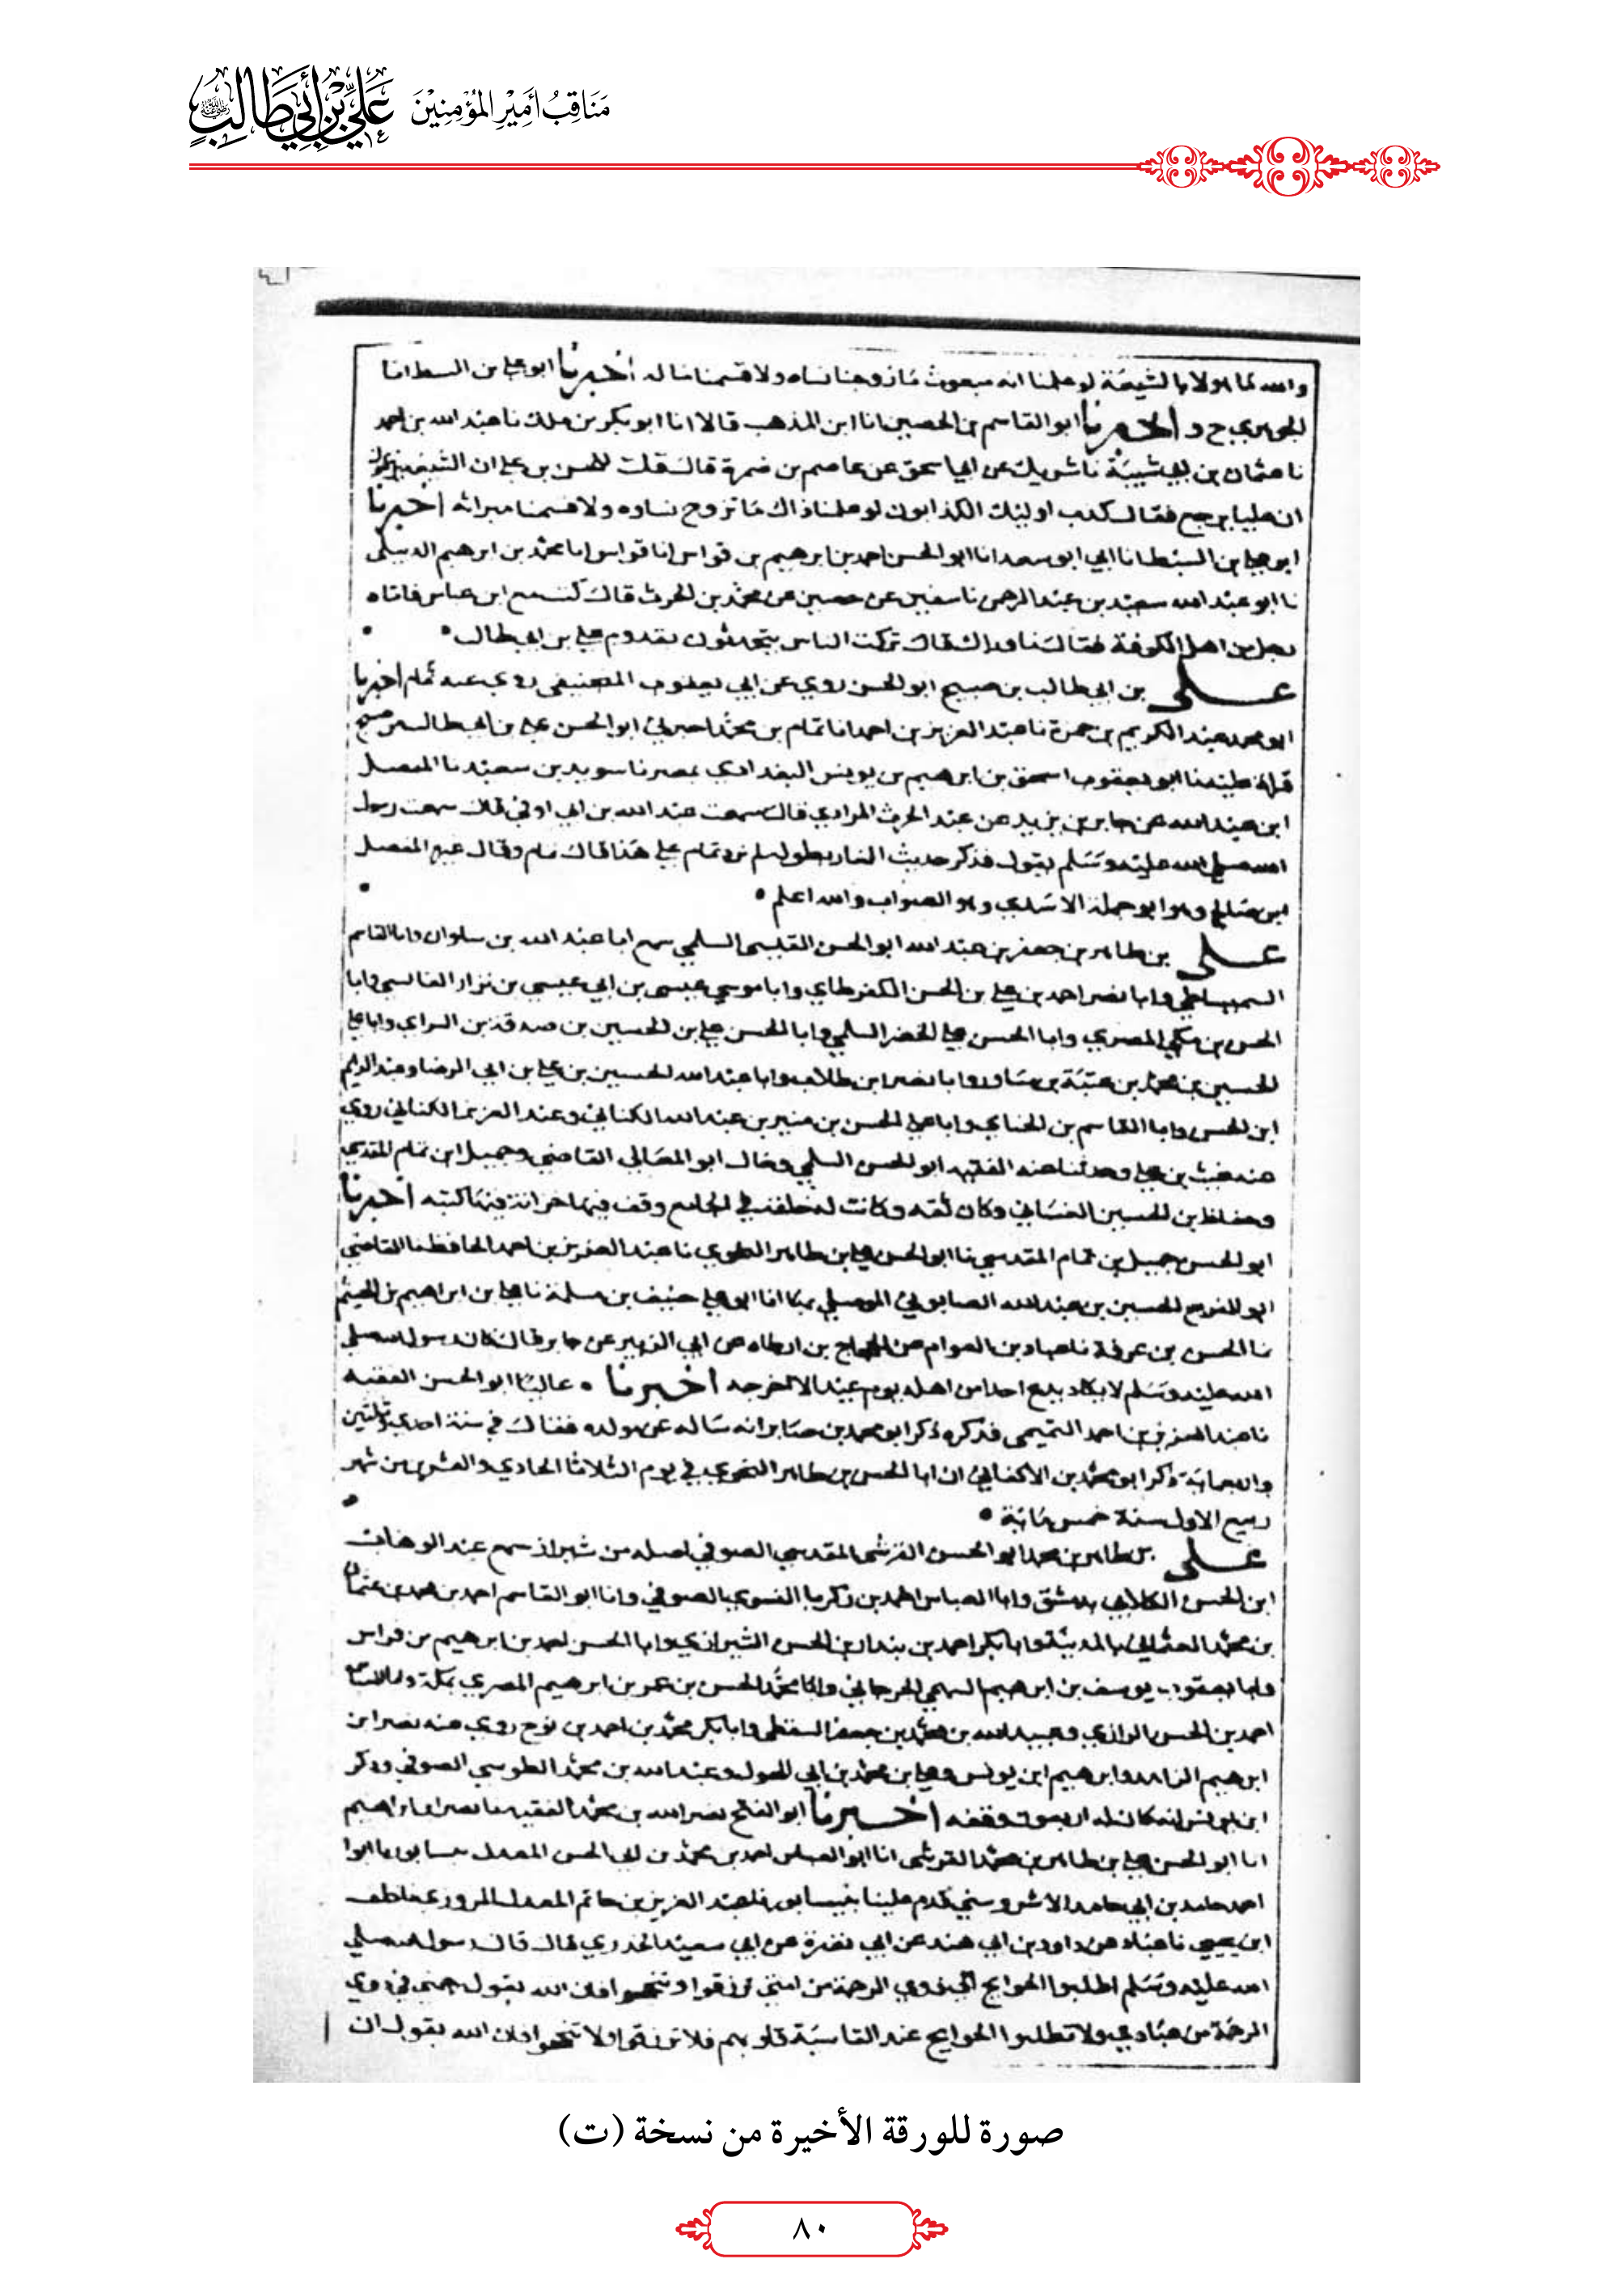 مَنَاقِبُ أَمِيْرِ المُؤْمِنِيْنَ عَلِيِّ بْنِ أَبِي طَالِبٍ
والله ما هولا بالشيعة لو علمنا انه مبعوث ما زوجنا نساه ولا قسمنا ماله اخبرنا ابو علي بن السبط انا
الجوهري ح و اخبرنا ابو القاسم بن الحصين انا ابن المذهب قالا انا ابو بكر بن ملك نا عبد الله بن احمد
نا عثمان بن ابي شيبة نا شريك عن ابي اسحق عن عاصم بن ضمرة قال قلت للحسن بن علي ان الشيعة
ان عليا يرجع فقال كذب اوليك الكذابون لو علمنا ذاك ما تزوج نساوه ولا قسمنا ميراثه اخبرنا
ابو علي بن السبط انا ابي ابو سعد انا ابو الحسن احمد بن ابرهيم بن فراس انا محمد بن ابرهيم الديبلي
نا ابو عبد الله سعيد بن عبد الرحمن نا سفين عن حصين عن محمد بن الحرث قال كنت مع ابن عباس فاتاه
رجل من اهل الكوفة فقال ما وراك قال تركت الناس يتحدثون بقدوم علي بن ابي طالب
علي بن ابي طالب بن صبيح ابو الحسن روي عن ابي يعقوب روي عنه تمام اخبرنا
ابو محمد عبد الكريم بن حمزة نا عبد العزيز بن احمد انا تمام بن محمد اخبرني ابو الحسن علي بن ابي طالب بن صبيح
قراة علينا ابو يعقوب اسحق بن ابرهيم بن يونس البغدادي بمصر نا سويد بن سعيد نا المفضل
ابن عبد الله عن جابر بن يزيد عن عبد الحرث المرادي قال سمعت عبد الله بن ابي اوفي قال سمعت رسول
الله صلي الله عليه وسلم يقول فذكر حديث الغار بطوله لم يزد تمام علي هذا قال تمام وقال غيره المفضل
ابن صالح وهو ابو جملة الاسدي وهو الصواب والله اعلم
علي بن طاهر بن جعفر بن عبد الله ابو الحسن القيسي السلمي سمع ابا عبد الله بن سلوان وابا القاسم
السميساطي وابا نصر احمد بن علي بن الحسن الكفرطابي وابا موسي عيسي بن ابي عيسي بن نزار القابسي وابا
الحسن بن مكي المصري وابا الحسن علي الخضر السلمي وابا الحسن علي بن الحسين بن صدقة بن السرابي وابا علي
الحسين بن محمد بن عتبة بن مساور وابا نصر ابن طلاب وابا عبد الله الحسين بن علي بن ابي الرضا وعبد الدايم
ابن الحسن وابا القاسم بن الحنايي وابا علي الحسن بن منير بن عبد الله الكناني وعبد العزيز الكناني روي
عنه غيث بن علي وحدثنا عنه الفقيه ابو الحسن السلمي وخالي ابو المعالي القاضي وجميل ابن تمام المقدسي
وحفاظ بن الحسين الغساني وكان ثقه وكانت له حلقة في الجامع وقف فيها خزانة فيها كتبه اخبرنا
ابو الحسن جميل بن تمام المقدسي نا ابو الحسن علي بن طاهر النحوي نا عبد العزيز بن احمد الحافظ نا القاضي
ابو الفرج الحسين بن عبد الله الصابوني الموصلي بها انا ابو علي حنيف بن مسلمة نا علي بن ابراهيم بن الهيثم
نا الحسن بن عرفة نا عباد بن العوام عن الحجاج بن ارطاه عن ابي الزبير عن جابر قال كان رسول الله صلي
الله عليه وسلم لا يكاد يدع احدا من اهله يوم عيد الا اخرجه اخبرنا عاليا ابو الحسن الفقيه
نا عبد العزيز بن احمد التميمي فذكره ذكر ابو محمد بن صابر انه ساله عن مولده فقال في سنة احدي وثلثين
واربعماية ذكر ابو محمد بن الاكفاني ان ابا الحسن بن طاهر النحوي في يوم الثلاثا الحادي والعشرين من شهر
ربيع الاول سنة خمس ماية
علي بن طاهر بن محمد ابو الحسن القرشي المقدسي الصوفي اصله من شيراز سمع عبد الوهاب
ابن الحسن الكلابي بدمشق وابا العباس احمد بن زكريا النسوي الصوفي وابا القاسم احمد بن محمد بن عثمان
بن محمد العثماني بالمدينة وابا بكر احمد بن بندار بن الحسن الشيرازي وابا الحسن احمد بن ابرهيم بن فراس
وابا يعقوب يوسف بن ابرهيم السهمي الجرجاني وابا محمد الحسن بن عمر بن ابرهيم المصري بمكة
احمد بن الحسن الرازي وعبيد الله بن محمد بن جعفر السقطي وابا بكر محمد بن احمد بن نوح روي عنه نصر ابن
ابرهيم الزاهد وابرهيم ابن يونس وعلي بن محمد بن ابي الهول وعبد الله بن محمد الطوسي الصوفي وذكر
ابن يونس انه كان له اربعون وقفه اخبرنا ابو الفتح نصر الله بن محمد الفقيه نا نصر ابن ابراهيم
انا ابو الحسن علي بن طاهر بن محمد القرشي انا ابو العباس احمد بن محمد بن ابي الحسن المعدل بنيسابور نا ابو
احمد حامد بن ابي حامد الاشروسني قدم علينا بنيسابور نا عبد العزيز بن حاتم المعدل المروزي نا خلف
ابن يحيي نا عباد عن داود بن ابي هند عن ابي نضرة عن ابي سعيد الخدري قال قال رسول الله صلي
الله عليه وسلم اطلبوا الحوايج الي ذوي الرحمة من امتي ترزقوا وتنجحوا فان الله يقول رحمتي في ذوي
الرحمة من عبادي ولا تطلبوا الحوايج عند القاسية قلوبهم فلا ترزقوا ولا تنجحوا فان الله يقول ان
صورة للورقة الأخيرة من نسخة (ت)
٨٠